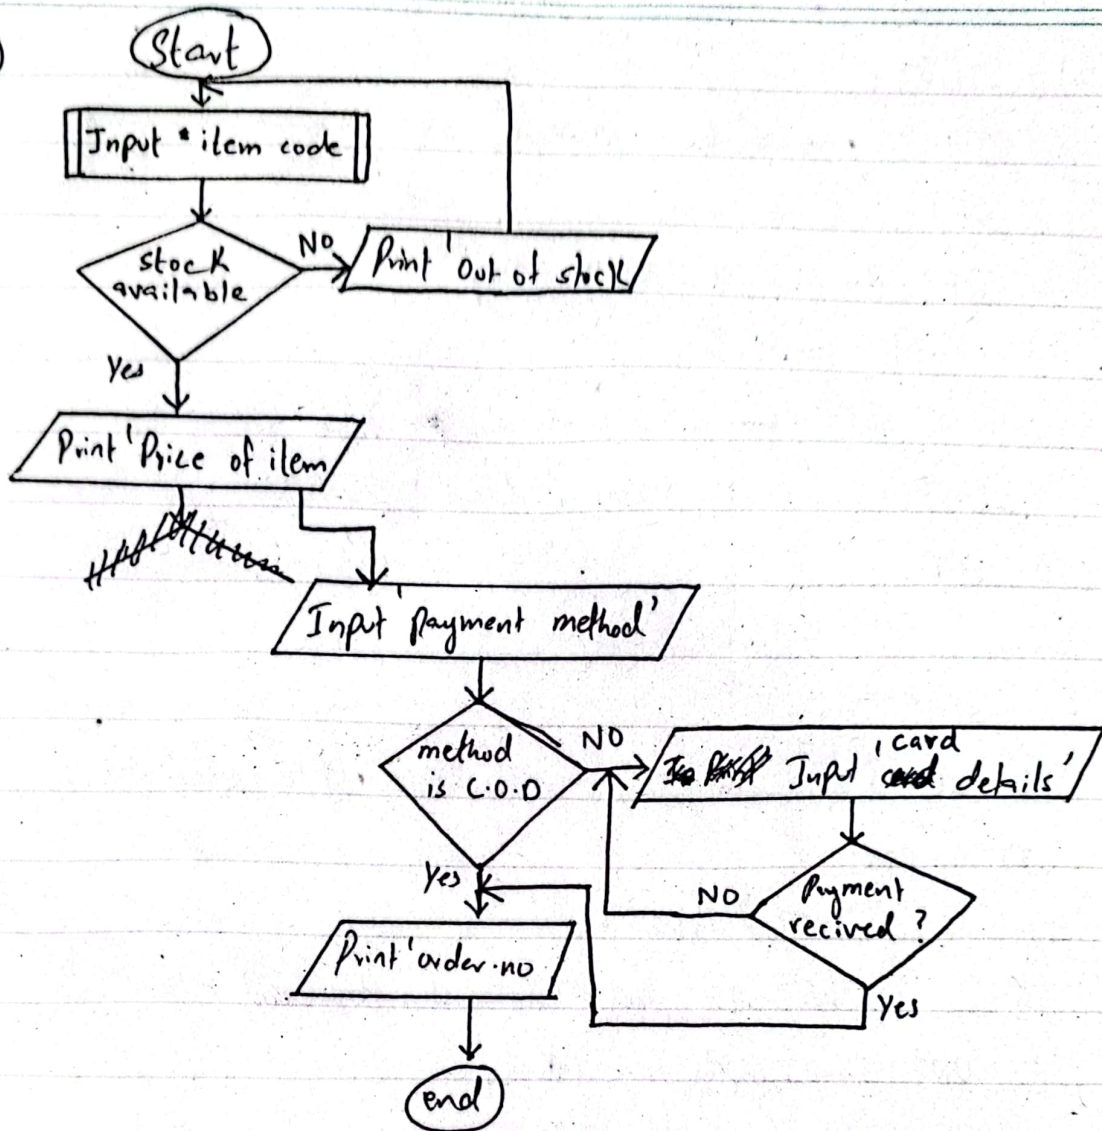 )
Start
Input item code
stock
available
NO
Print 'Out of stock
Yes
Print 'Price of item
Input 'payment method'
method
is C.O.D
NO
Input 'card
details'
Yes
Payment
recived ?
NO
Yes
Print 'order.no
end